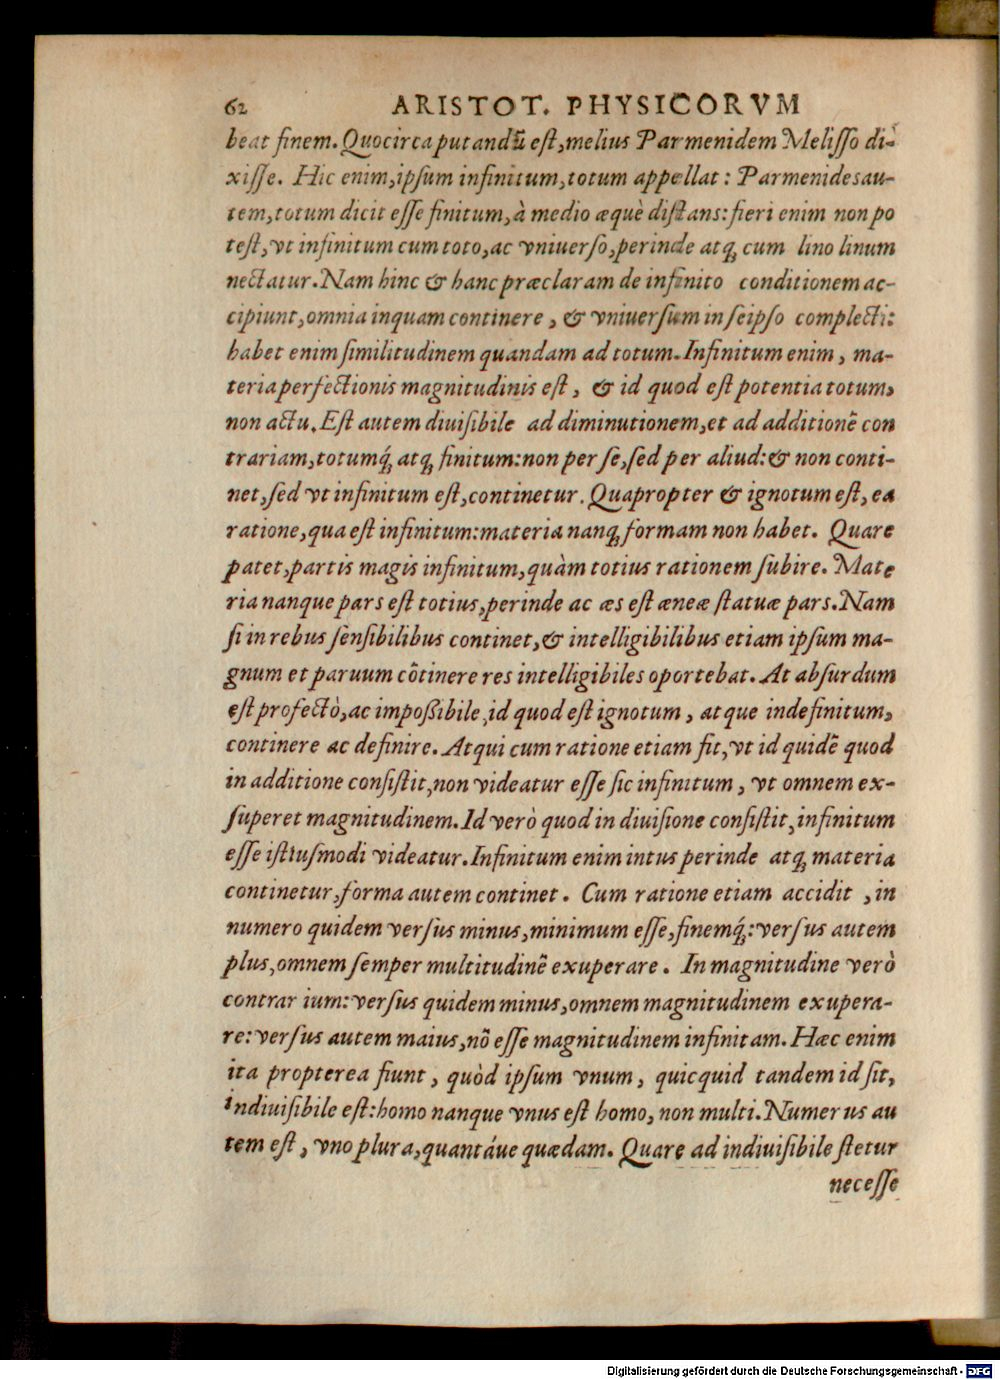 62 ARISTOT. PHYSICORVM
beat finem. Quocirca putandū est, melius Parmenidem Melisso di-
xisse. Hic enim, ipsum infinitum, totum appellat: Parmenides au-
tem, totum dicit esse finitum, à medio æquè distans: fieri enim non po
test, vt infinitum cum toto, ac vniuerso, perinde atq; cum lino linum
nectatur. Nam hinc & hanc præclaram de infinito conditionem ac-
cipiunt, omnia inquam continere, & vniuersum in seipso complecti:
habet enim similitudinem quandam ad totum. Infinitum enim, ma-
teria perfectionis magnitudinis est, & id quod est potentia totum,
non actu. Est autem diuisibile ad diminutionem, et ad additionē con
trariam, totumq́; atq; finitum: non per se, sed per aliud: & non conti-
net, sed vt infinitum est, continetur. Quapropter & ignotum est, ea
ratione, qua est infinitum: materia nanq; formam non habet. Quare
patet, partis magis infinitum, quàm totius rationem subire. Mate
ria nanque pars est totius, perinde ac æs est æneæ statuæ pars. Nam
si in rebus sensibilibus continet, & intelligibilibus etiam ipsum ma-
gnum et paruum cōtinere res intelligibiles oportebat. At absurdum
est profectò, ac impoßibile, id quod est ignotum, atque indefinitum,
continere ac definire. Atqui cum ratione etiam fit, vt id quidē quod
in additione consistit, non videatur esse sic infinitum, vt omnem ex-
superet magnitudinem. Id verò quod in diuisione consistit, infinitum
esse istiusmodi videatur. Infinitum enim intus perinde atq; materia
continetur, forma autem continet. Cum ratione etiam accidit, in
numero quidem versus minus, minimum esse, finemq́;: versus autem
plus, omnem semper multitudinē exuperare. In magnitudine verò
contrar ium: versus quidem minus, omnem magnitudinem exupera-
re: versus autem maius, nō esse magnitudinem infinitam. Hæc enim
ita propterea fiunt, quòd ipsum vnum, quicquid tandem id sit,
indiuisibile est: homo nanque vnus est homo, non multi. Numerus au
tem est, vno plura, quantáue quædam. Quare ad indiuisibile stetur
necesse
Digitalisierung gefördert durch die Deutsche Forschungsgemeinschaft - DFG